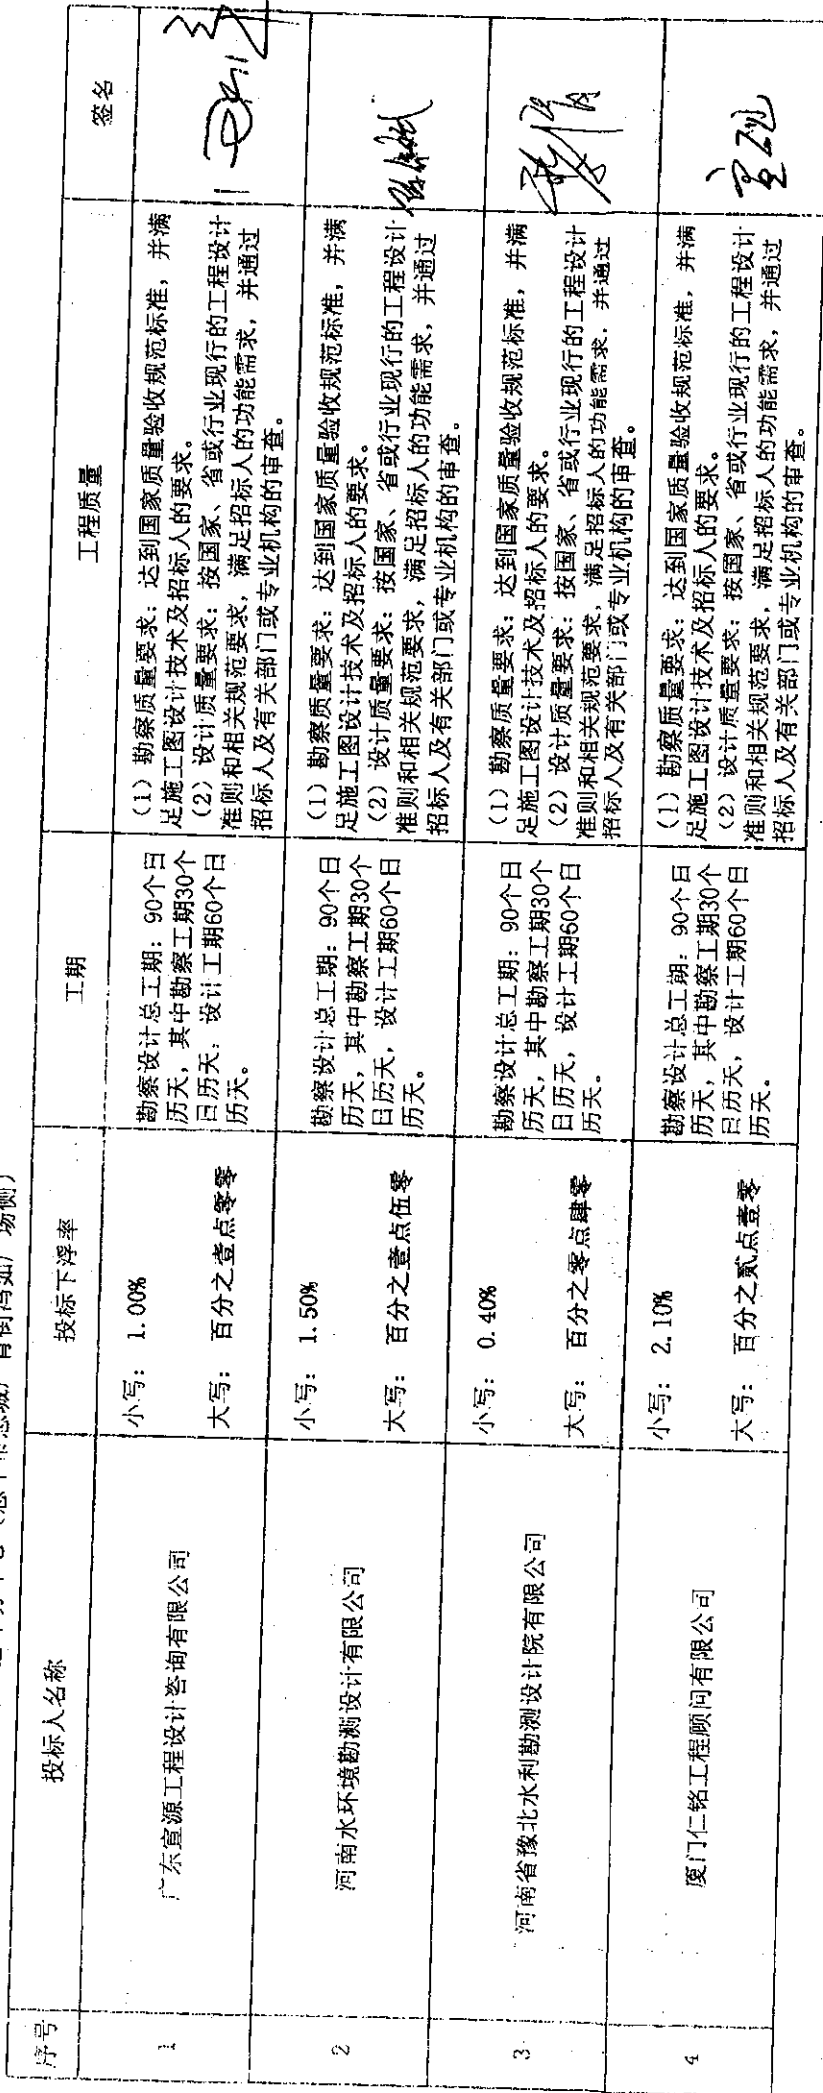 序号 投标人名称 投标下浮率 工期 工程质量 签名
1
广东宣源工程设计咨询有限公司
小写：1.00%
大写：百分之壹点零零
勘察设计总工期：90个日
历天，其中勘察工期30个
日历天，设计工期60个日
历天。
（1）勘察质量要求：达到国家质量验收规范标准，并满
足施工图设计技术及招标人的要求。
（2）设计质量要求：按国家、省或行业现行的工程设计
准则和相关规范要求，满足招标人的功能需求，并通过
招标人及有关部门或专业机构的审查。
2
河南水环境勘测设计有限公司
小写：1.50%
大写：百分之壹点伍零
勘察设计总工期：90个日
历天，其中勘察工期30个
日历天，设计工期60个日
历天。
（1）勘察质量要求：达到国家质量验收规范标准，并满
足施工图设计技术及招标人的要求。
（2）设计质量要求：按国家、省或行业现行的工程设计
准则和相关规范要求，满足招标人的功能需求，并通过
招标人及有关部门或专业机构的审查。
3
河南省豫北水利勘测设计院有限公司
小写：0.40%
大写：百分之零点肆零
勘察设计总工期：90个日
历天，其中勘察工期30个
日历天，设计工期60个日
历天。
（1）勘察质量要求：达到国家质量验收规范标准，并满
足施工图设计技术及招标人的要求。
（2）设计质量要求：按国家、省或行业现行的工程设计
准则和相关规范要求，满足招标人的功能需求，并通过
招标人及有关部门或专业机构的审查。
4
厦门仁铭工程顾问有限公司
小写：2.10%
大写：百分之贰点壹零
勘察设计总工期：90个日
历天，其中勘察工期30个
日历天，设计工期60个日
历天。
（1）勘察质量要求：达到国家质量验收规范标准，并满
足施工图设计技术及招标人的要求。
（2）设计质量要求：按国家、省或行业现行的工程设计
准则和相关规范要求，满足招标人的功能需求，并通过
招标人及有关部门或专业机构的审查。